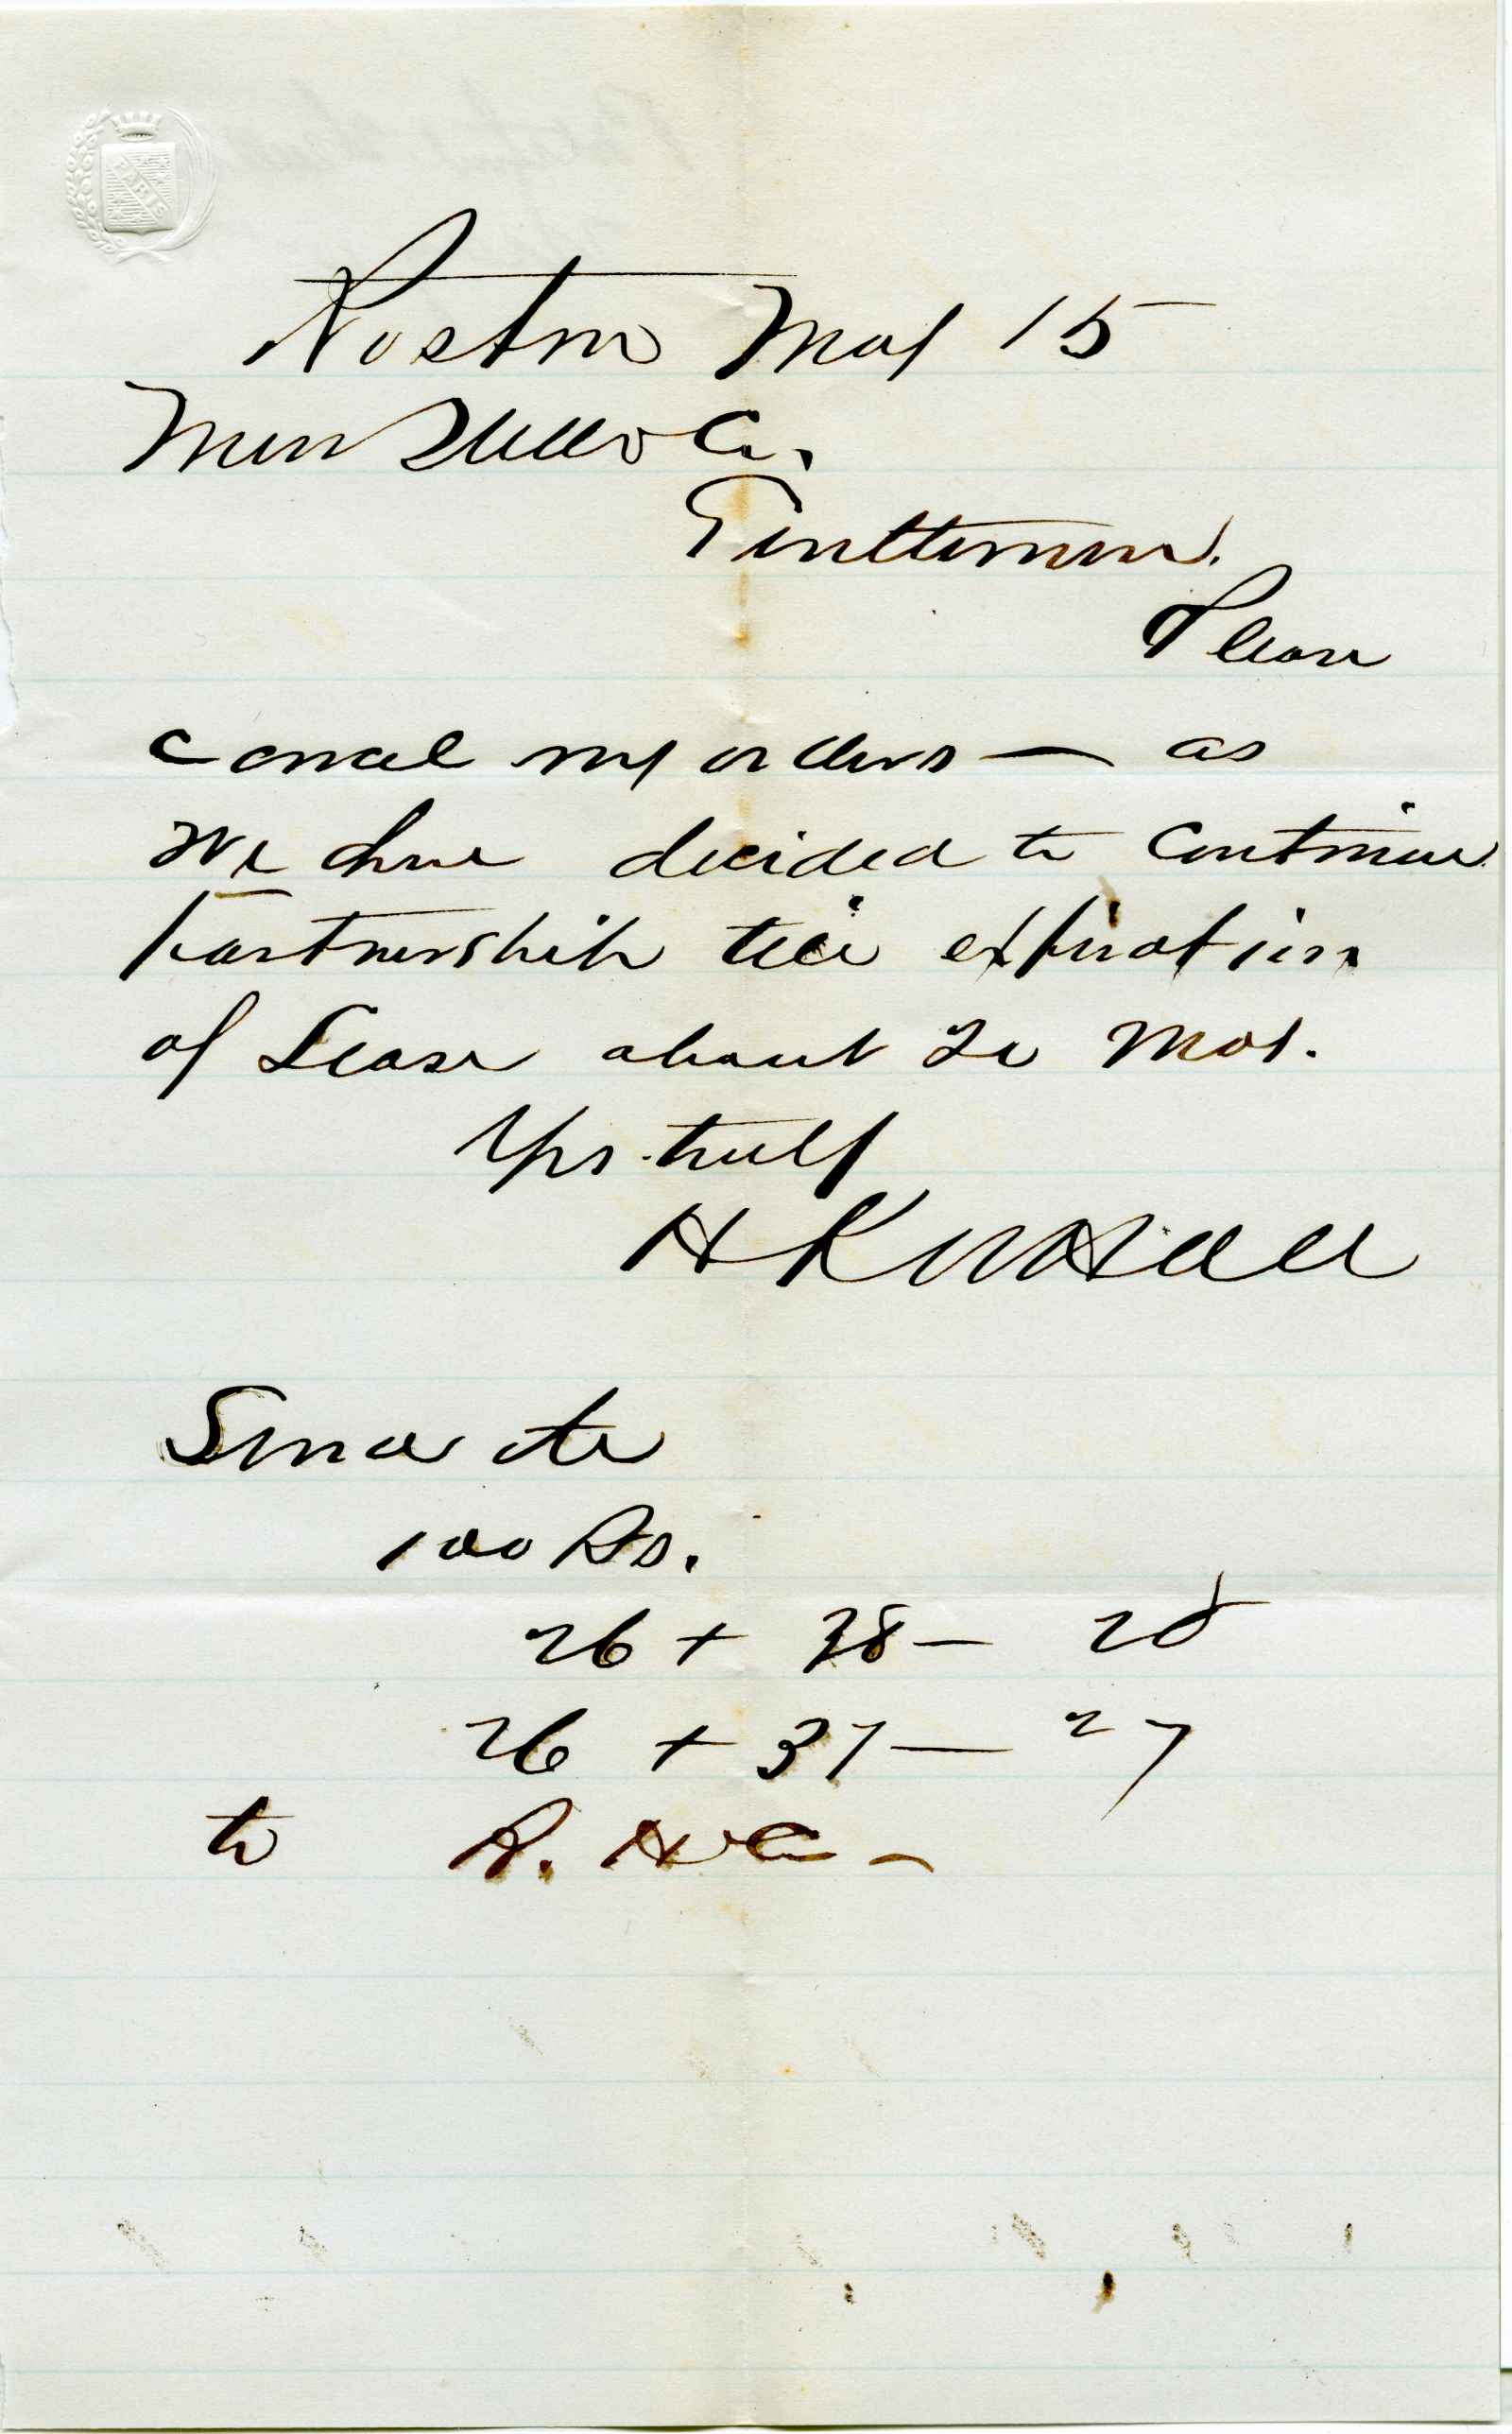 PARIS
Boston May 15
Gentlemen.
Please
cancel my orders — as
we have decided to continue
partnership till expiration
of Lease about 20 mos.
Yrs. truly
H K W Hall
100 Rs.
26 + 38 — 28
26 + 37 — 27
to R. H & Co —